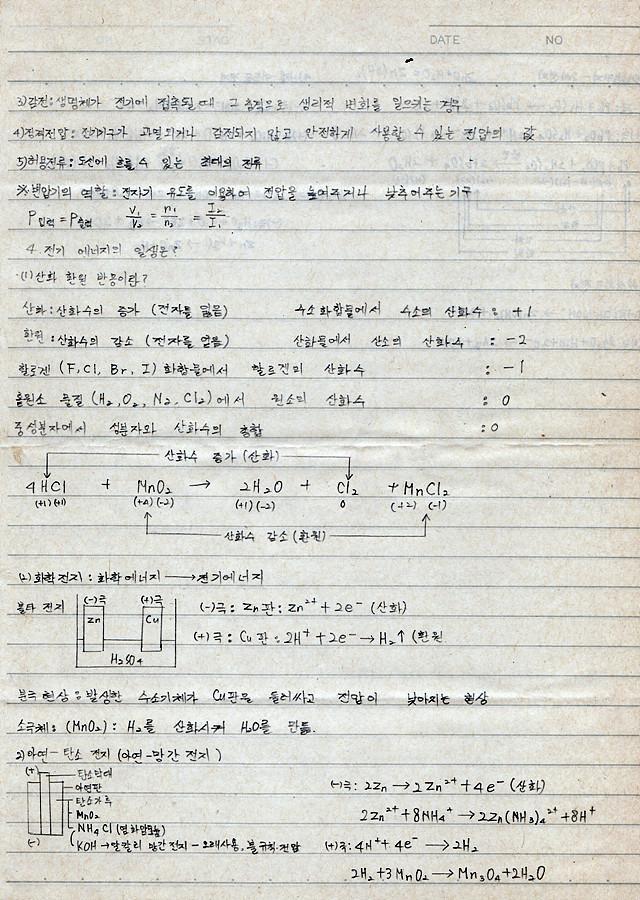 DATE NO
3) 감전 : 생명체가 전기에 접촉될 때 그 충격으로 생리적 변화를 일으키는 경우
4) 정격전압 : 전기기구가 과열되거나 감전되지 않고 안전하게 사용할 수 있는 전압의 값
5) 허용전류 : 도선에 흐를 수 있는 최대의 전류
※ 변압기의 역할 : 전자기 유도를 이용하여 전압을 높여주거나 낮추어주는 기구
P입력 = P출력 V₁/V₂ = n₁/n₂ = I₂/I₁
4. 전기 에너지의 일생은?
(1) 산화 환원 반응이란?
산화 : 산화수의 증가 (전자를 잃음) 수소화합물에서 수소의 산화수 : +1
환원 : 산화수의 감소 (전자를 얻음) 산화물에서 산소의 산화수 : -2
할로겐 (F, Cl, Br, I) 화합물에서 할로겐의 산화수 : -1
홑원소 물질 (H₂, O₂, N₂, Cl₂) 에서 원소의 산화수 : 0
중성분자에서 성분자와 산화수의 총합 : 0
산화수 증가 (산화)
4HCl + MnO₂ → 2H₂O + Cl₂ + MnCl₂
(+1) (-1) (+4) (-2) (+1) (-2) 0 (+2) (-1)
산화수 감소 (환원)
(2) 화학전지 : 화학에너지 → 전기에너지
볼타 전지 (-)극 (+)극 (-)극 : Zn판 : Zn²⁺ + 2e⁻ (산화)
Zn Cu (+)극 : Cu판 : 2H⁺ + 2e⁻ → H₂↑ (환원
H₂SO₄
분극현상 : 발생한 수소기체가 Cu판을 둘러싸고 전압이 낮아지는 현상
소극제 : (MnO₂) : H₂를 산화시켜 H₂O를 만듦.
2) 아연-탄소 전지 (아연-망간 전지)
(+) 탄소막대
아연판 (-)극 : 2Zn → 2Zn²⁺ + 4e⁻ (산화)
탄소가루
MnO₂ 2Zn²⁺ + 8NH₄⁺ → 2Zn(NH₃)₄²⁺ + 8H⁺
NH₄Cl (염화암모늄)
(-) KOH → 알칼리 망간 전지 - 오래사용, 불규칙 전압 (+)극 : 4H⁺ + 4e⁻ → 2H₂
2H₂ + 3MnO₂ → Mn₃O₄ + 2H₂O